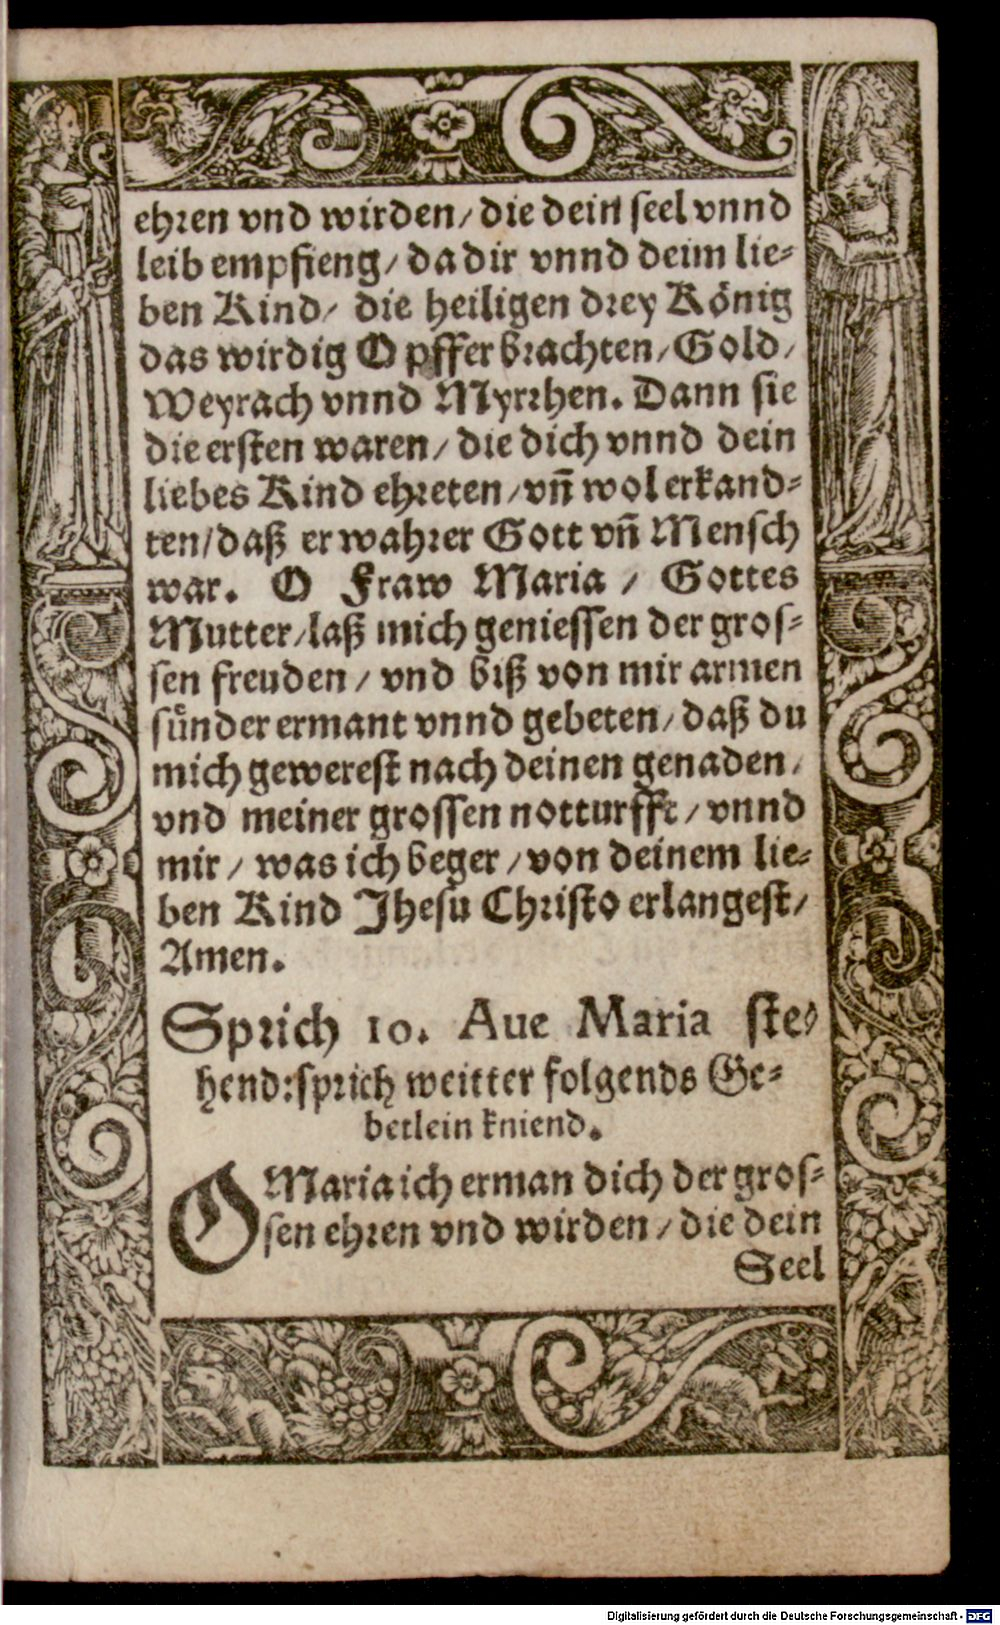 ehren vnd wirden/ die dein seel vnnd
leib empfieng/ da dir vnnd deim lie-
ben Kind/ die heiligen drey König
das wirdig Opffer brachten/ Gold/
Weyrach vnnd Myrrhen. Dann sie
die ersten waren/ die dich vnnd dein
liebes Kind ehreten/ vñ wol erkand-
ten/ daß er wahrer Gott vñ Mensch
war. O Fraw Maria / Gottes
Mutter/ laß mich geniessen der gros-
sen freuden / vnd biß von mir armen
sünder ermant vnnd gebeten/ daß du
mich gewerest nach deinen genaden/
vnd meiner grossen notturfft/ vnnd
mir / was ich beger / von deinem lie-
ben Kind Jhesu Christo erlangest/
Amen.
Sprich 10. Aue Maria ste-
hend: sprich weitter folgends Ge-
betlein kniend.
O Maria ich erman dich der gros-
sen ehren vnd wirden / die dein
Seel
Digitalisierung gefördert durch die Deutsche Forschungsgemeinschaft - DFG